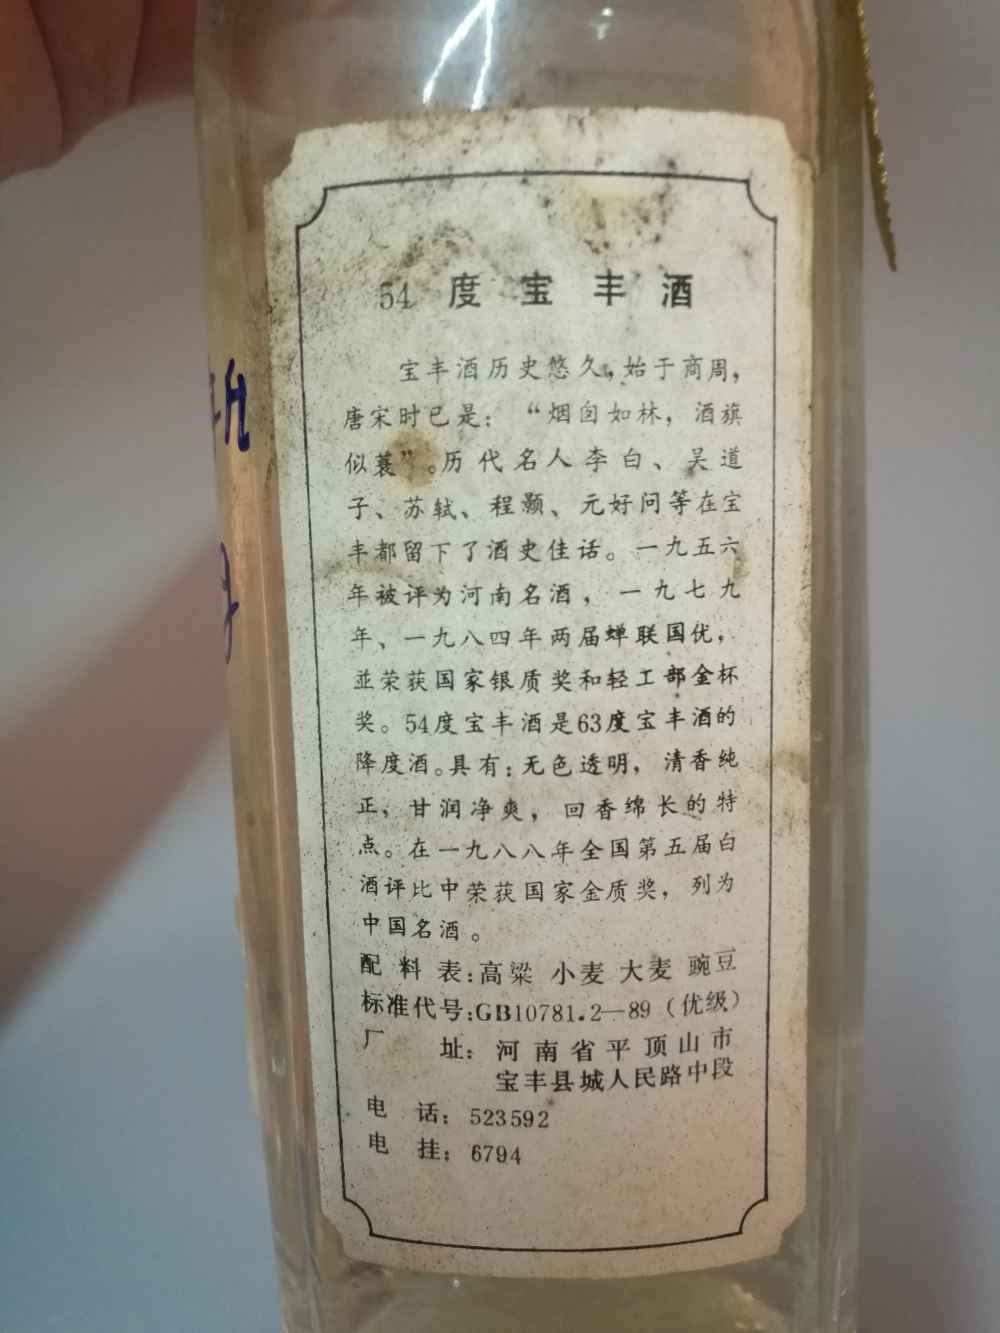 54 度宝丰酒
宝丰酒历史悠久，始于商周，
唐宋时已是：“烟囱如林，酒旗
似蓑”。历代名人李白、吴道
子、苏轼、程颢、元好问等在宝
丰都留下了酒史佳话。一九五六
年被评为河南名酒，一九七九
年、一九八四年两届蝉联国优，
並荣获国家银质奖和轻工部金杯
奖。54度宝丰酒是63度宝丰酒的
降度酒。具有：无色透明，清香纯
正，甘润净爽，回香绵长的特
点。在一九八八年全国第五届白
酒评比中荣获国家金质奖，列为
中国名酒。
配料表：高粱 小麦 大麦 豌豆
标准代号：GB10781.2—89（优级）
厂址：河南省平顶山市
宝丰县城人民路中段
电话：523592
电挂：6794